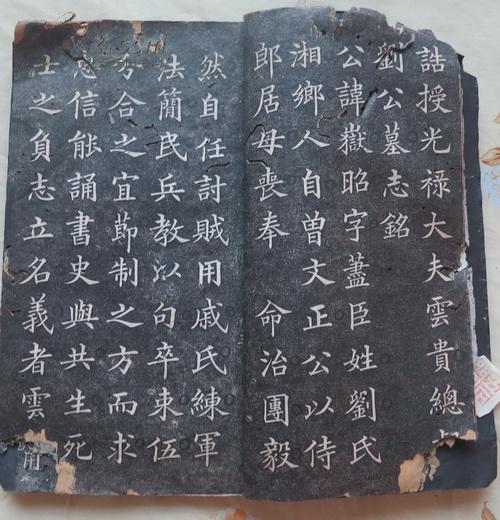 誥授光祿大夫雲貴總
劉公墓志銘
公諱嶽昭字藎臣姓劉氏
湘鄉人自曾文正公以侍
郎居母喪奉 命治團毅
然自任討賊用戚氏練軍
法簡民兵教以句卒束伍
分合之宜節制之方而求
忠信能誦書史與共生死
士之負志立名義者雲